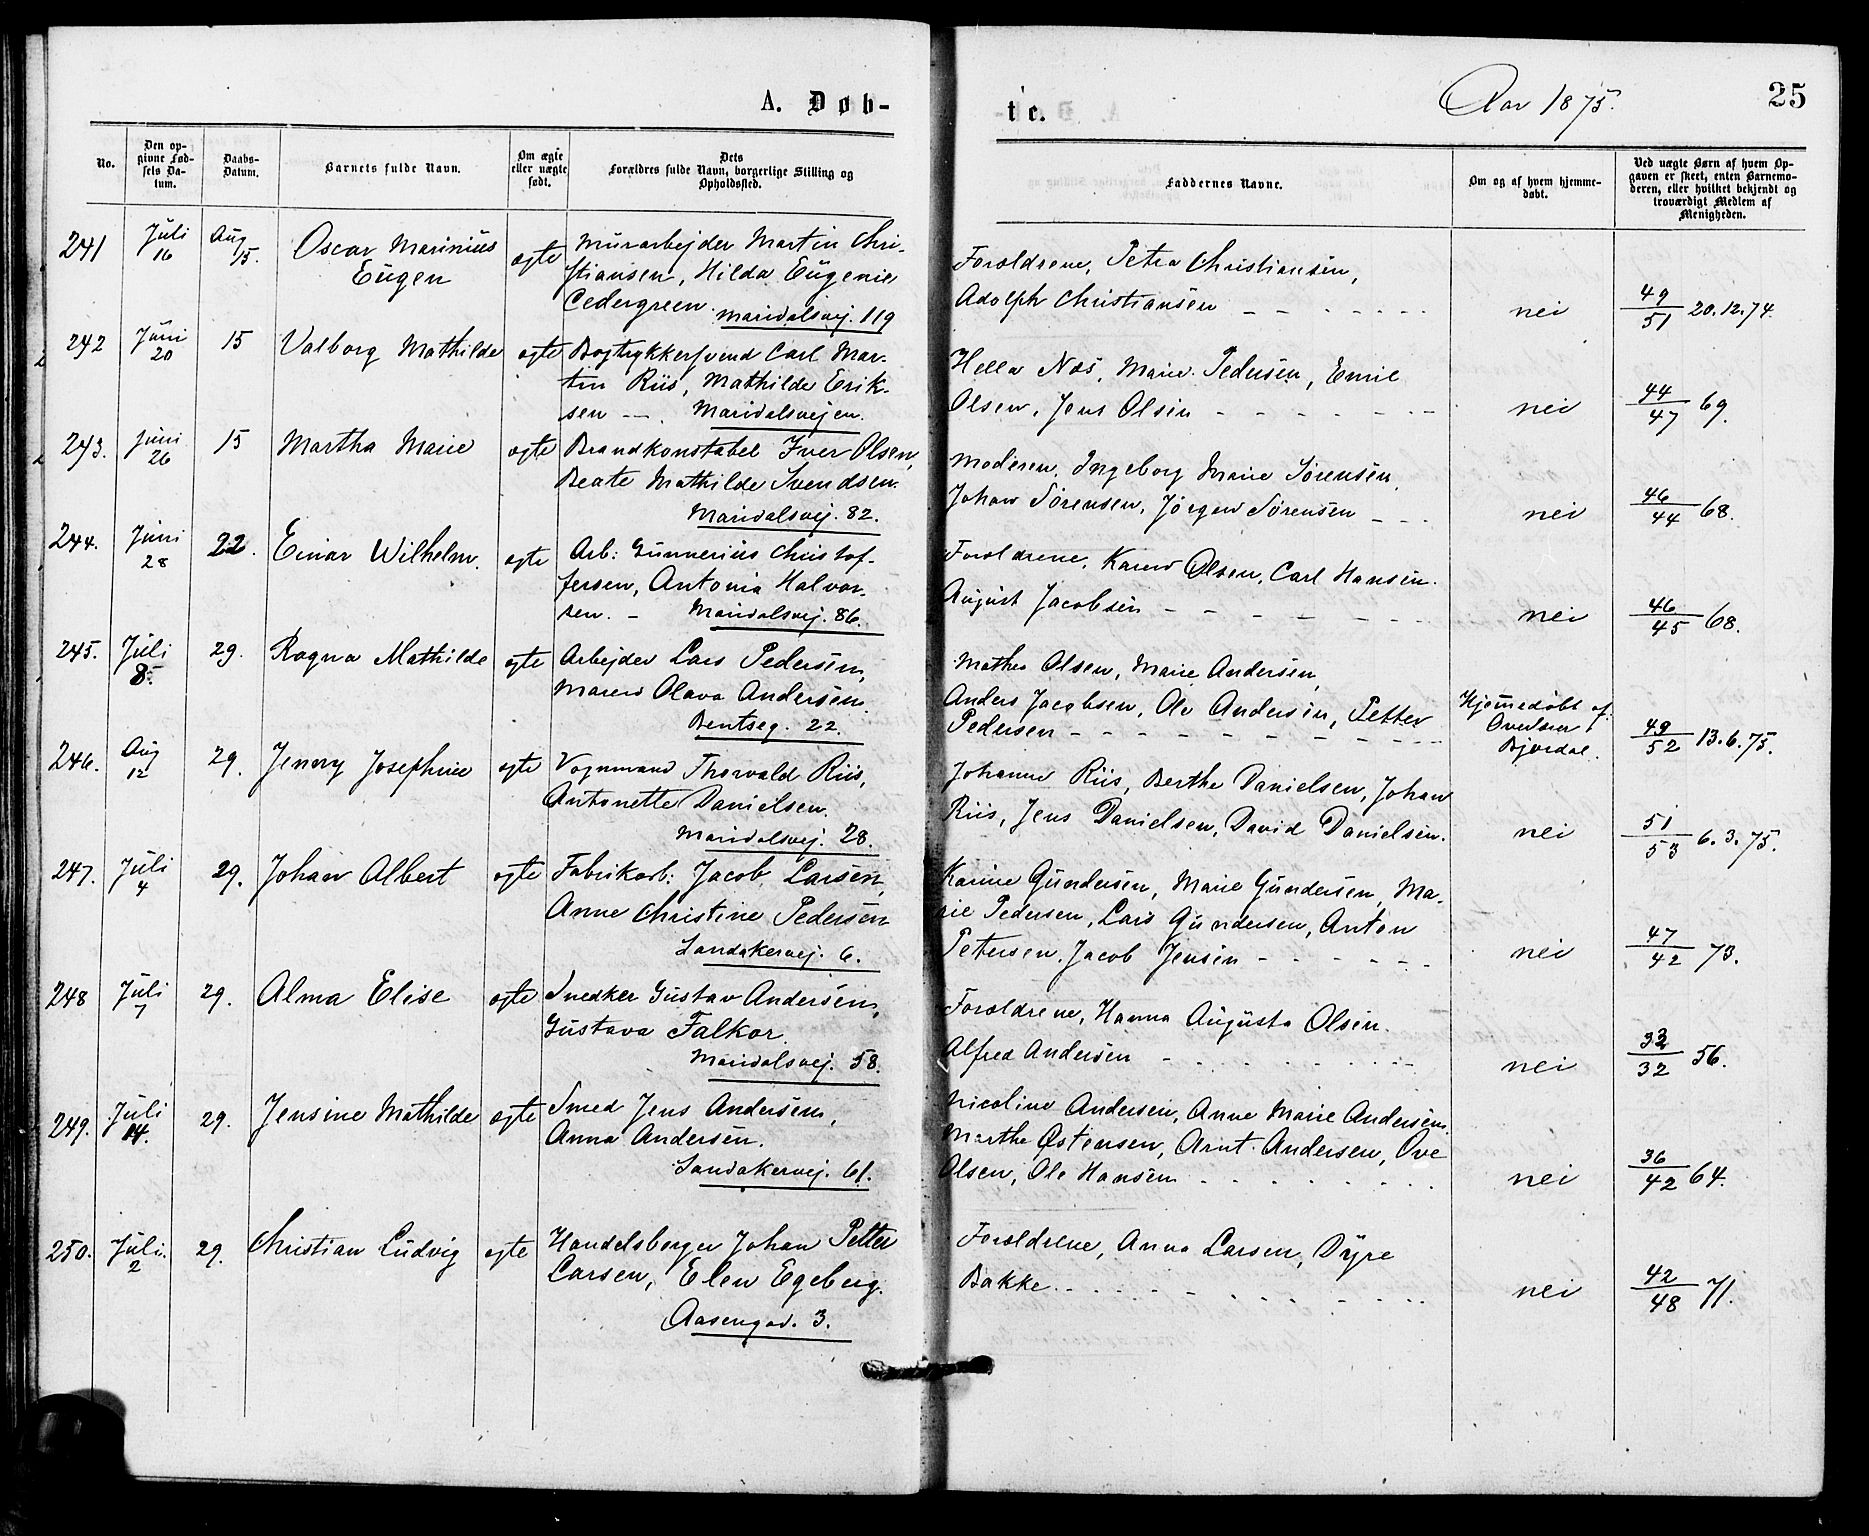 A. Døb-
No.
Den op-
givne Fød-
sels Da-
tum.
Daabs-
Datum.
Barnets fulde Navn.
Om ægte
eller uægte
født.
Dets
Forældres fulde Navn, borgerlige Stilling og
Opholdssted.
241 Juli 16 Aug 15. Oscar Marinius
Eugen
ægte
Murarbejder Martin Chri-
stiansen, Hilda Eugenie
Cedergreen.
Maridalsvej. 119
242 Juni 20 15 Valborg Mathilde ægte Bogtrykkersvend Carl Mar-
tin Riis, Mathilde Erik-
sen — Maridalsvejen.
243. Juni 26 15 Martha Marie ægte Brandkonstabel Iver Olsen,
Beate Mathilde Svendsen.
Maridalsvej. 82.
244. Juni 28 22. Einar Wilhelm. ægte Arb: Gunnerius Christof-
fersen, Antonia Halvor-
sen. - Maridalsvej. 86.
245. Juli 8. 29. Ragna Mathilde ægte Arbejder Lars Pedersen,
Maren Olava Andersen.
Bentseg. 22.
246. Aug 12 29. Jenny Josephine ægte Vognmand Thorvald Riis,
Antonette Danielsen.
Maridalsvej. 28.
247. Juli 4 29. Johan Albert ægte Fabrikarb: Jacob Larsen,
Anne Christine Pedersen
Sandakervej. 6.
248 Juli 7 29. Alma Elise ægte Snedker Gustav Andersen,
Gustava Falkor.
Maridalsvej. 58.
249. Juli 14. 29. Jensine Mathilde ægte Smed Jens Andersen,
Anna Andersen.
Sandakervej. 61.
250. Juli. 2 29. Christian Ludvig ægte Handelsborger Johan Petter
Larsen, Elen Egeberg.
Aasengad. 3.
te.
Aar 1875.
25
Faddernes Navne.
Om og af hvem hjemme-
døbt.
Ved uægte Børn af hvem Op-
gaven er skeet, enten Barnemo-
deren, eller hvilket bekjendt og
troværdigt Medlem af
Menigheden.
Forældrene, Petra Christiansen,
Adolph Christiansen - - - - - - - nei 49/51 20.12.74.
Hella Næs, Marie Pedersen, Emil
Olsen, Jens Olsen - - - - - - - nei 44/47 69.
Moderen, Ingeborg Marie Sørensen,
Johan Sørensen, Jørgen Sørensen - - - nei 46/44 68.
Forældrene, Karen Olsen, Carl Hansen.
August Jacobsen - - - - - - - nei 46/45 68.
Mathea Olsen, Marie Andersen,
Anders Jacobsen, Ole Andersen, Petter
Pedersen - - - - - - - - - -
Hjemmedøbt af
Overlærer
Bjerdal.
49/52 13.6.75.
Johanne Riis, Berthe Danielsen, Johan
Riis, Jens Danielsen, David Danielsen. nei 51/53 6.3.75.
Karine Gundersen, Marie Gundersen, Ma-
rie Pedersen, Lars Gundersen, Anton
Petersen, Jacob Jensen - - - - - - nei 47/42 73.
Forældrene, Hanna Augusta Olsen.
Alfred Andersen - - - - - - - nei 33/32 56.
Nicoline Andersen, Anne Marie Andersen,
Marthe Østensen, Arnt Andersen, Ove
Olsen, Ole Hansen - - - - - - - nei 36/42 64.
Forældrene, Anna Larsen, Dyre
Bakke. - - - - - - - - - nei 42/48 71.